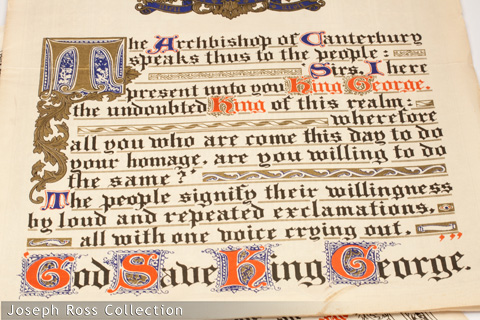 The Archbishop of Canterbury
speaks thus to the people:
Sirs, I here
present unto you King George,
the undoubted King of this realm:
wherefore
all you who are come this day to do
your homage, are you willing to do
the same?'
The people signify their willingness
by loud and repeated exclamations,
all with one voice crying out,
"God Save King George.
Joseph Ross Collection